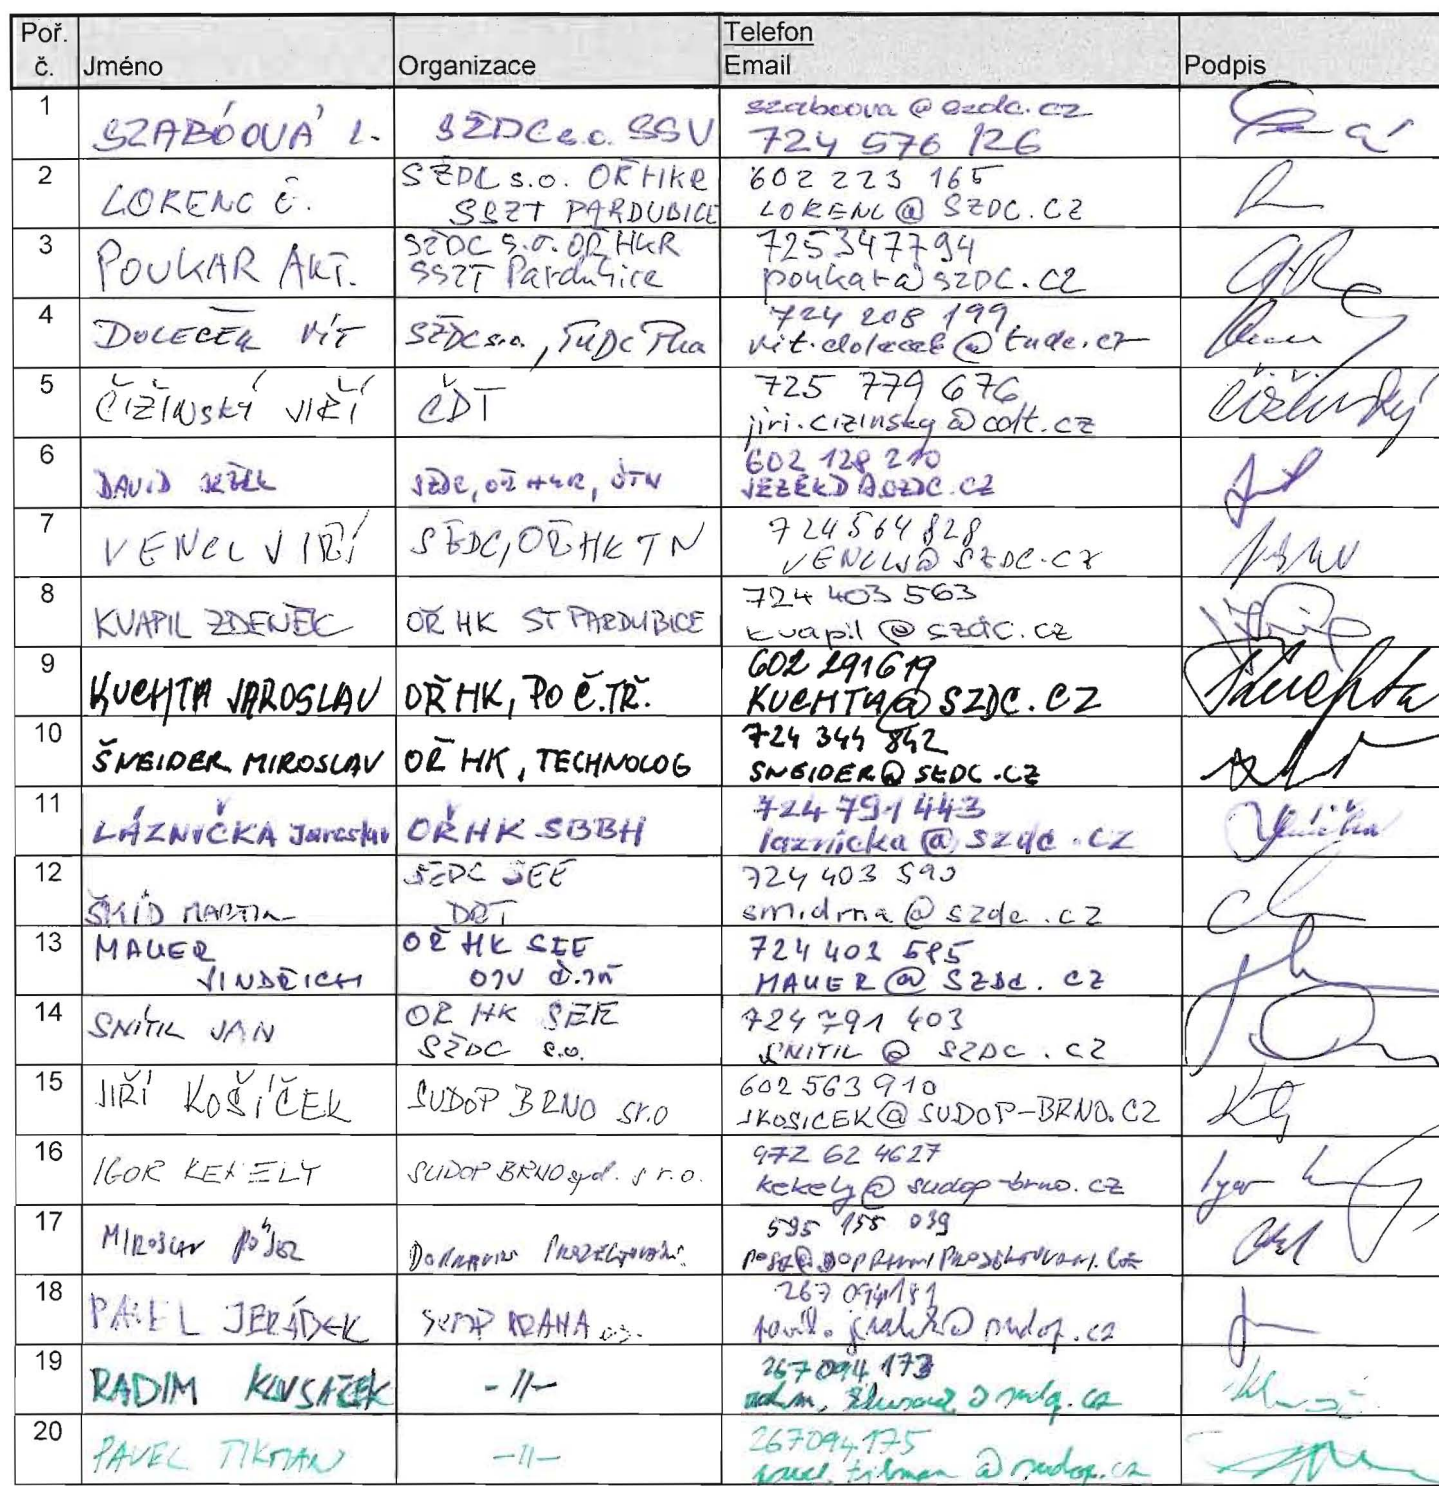 Poř. č. Jméno Organizace Telefon Email Podpis
1 SZABÓOVÁ L. SŽDC s.o. SSV szaboova@szdc.cz
724 576 126
2 LORENC Č. SŽDC s.o. OŘ HKR SSZT PARDUBICE 602 223 165
LORENC@SZDC.CZ
3 POUKAR ANT. SŽDC s.o. OŘ HKR SSZT Pardubice 725347794
poukar@szdc.cz
4 DOLEČEK VÍT SŽDC s.o., TÚDC Pha 724 208 199
vit.dolecek@tudc.cz
5 ČIŽINSKÝ JIŘÍ ČDT 725 779 676
jiri.cizinsky@cdt.cz
6 DAVID JEŽEK SŽDC, OŘ HKR, ÚTN 602 128 210
JEZEKD@SZDC.CZ
7 VENCL JIŘÍ SŽDC, OŘ HK TN 724564828
VENCLJ@SZDC.CZ
8 KVAPIL ZDENĚK OŘ HK ST PARDUBICE 724 403 563
kvapil@szdc.cz
9 KUCHTA JAROSLAV OŘ HK, PO Č.TŘ. 602 291619
KUCHTA@SZDC.CZ
10 ŠNEIDER MIROSLAV OŘ HK, TECHNOLOG 724 344 842
SNEIDER@SZDC.CZ
11 LÁZNIČKA Jaroslav OŘ HK SBBH 724 791 443
laznicka@szdc.cz
12 ŠMÍD MARTIN SŽDC SEE DŘT 724 403 590
smidma@szdc.cz
13 MAUER JINDŘICH OŘ HK SEE 724 403 585
MAUER@SZDC.CZ
14 SNÍTIL JAN OŘ HK SEE SŽDC s.o. 724 791 403
SNITIL@SZDC.CZ
15 JIŘÍ KOŠÍČEK SUDOP BRNO sr.o 602 563 910
JKOSICEK@SUDOP-BRNO.CZ
16 IGOR KEKELY SUDOP BRNO spol. s r.o. 972 62 4627
kekely@sudop-brno.cz
17 MIROSLAV 595 155 039
18 PAVEL JEŘÁBEK SUDOP PRAHA a.s. 267 094181
19 RADIM -//- 267094 173
20 PAVEL TIKMAN -//- 267094175
pavel.tikman@sudop.cz